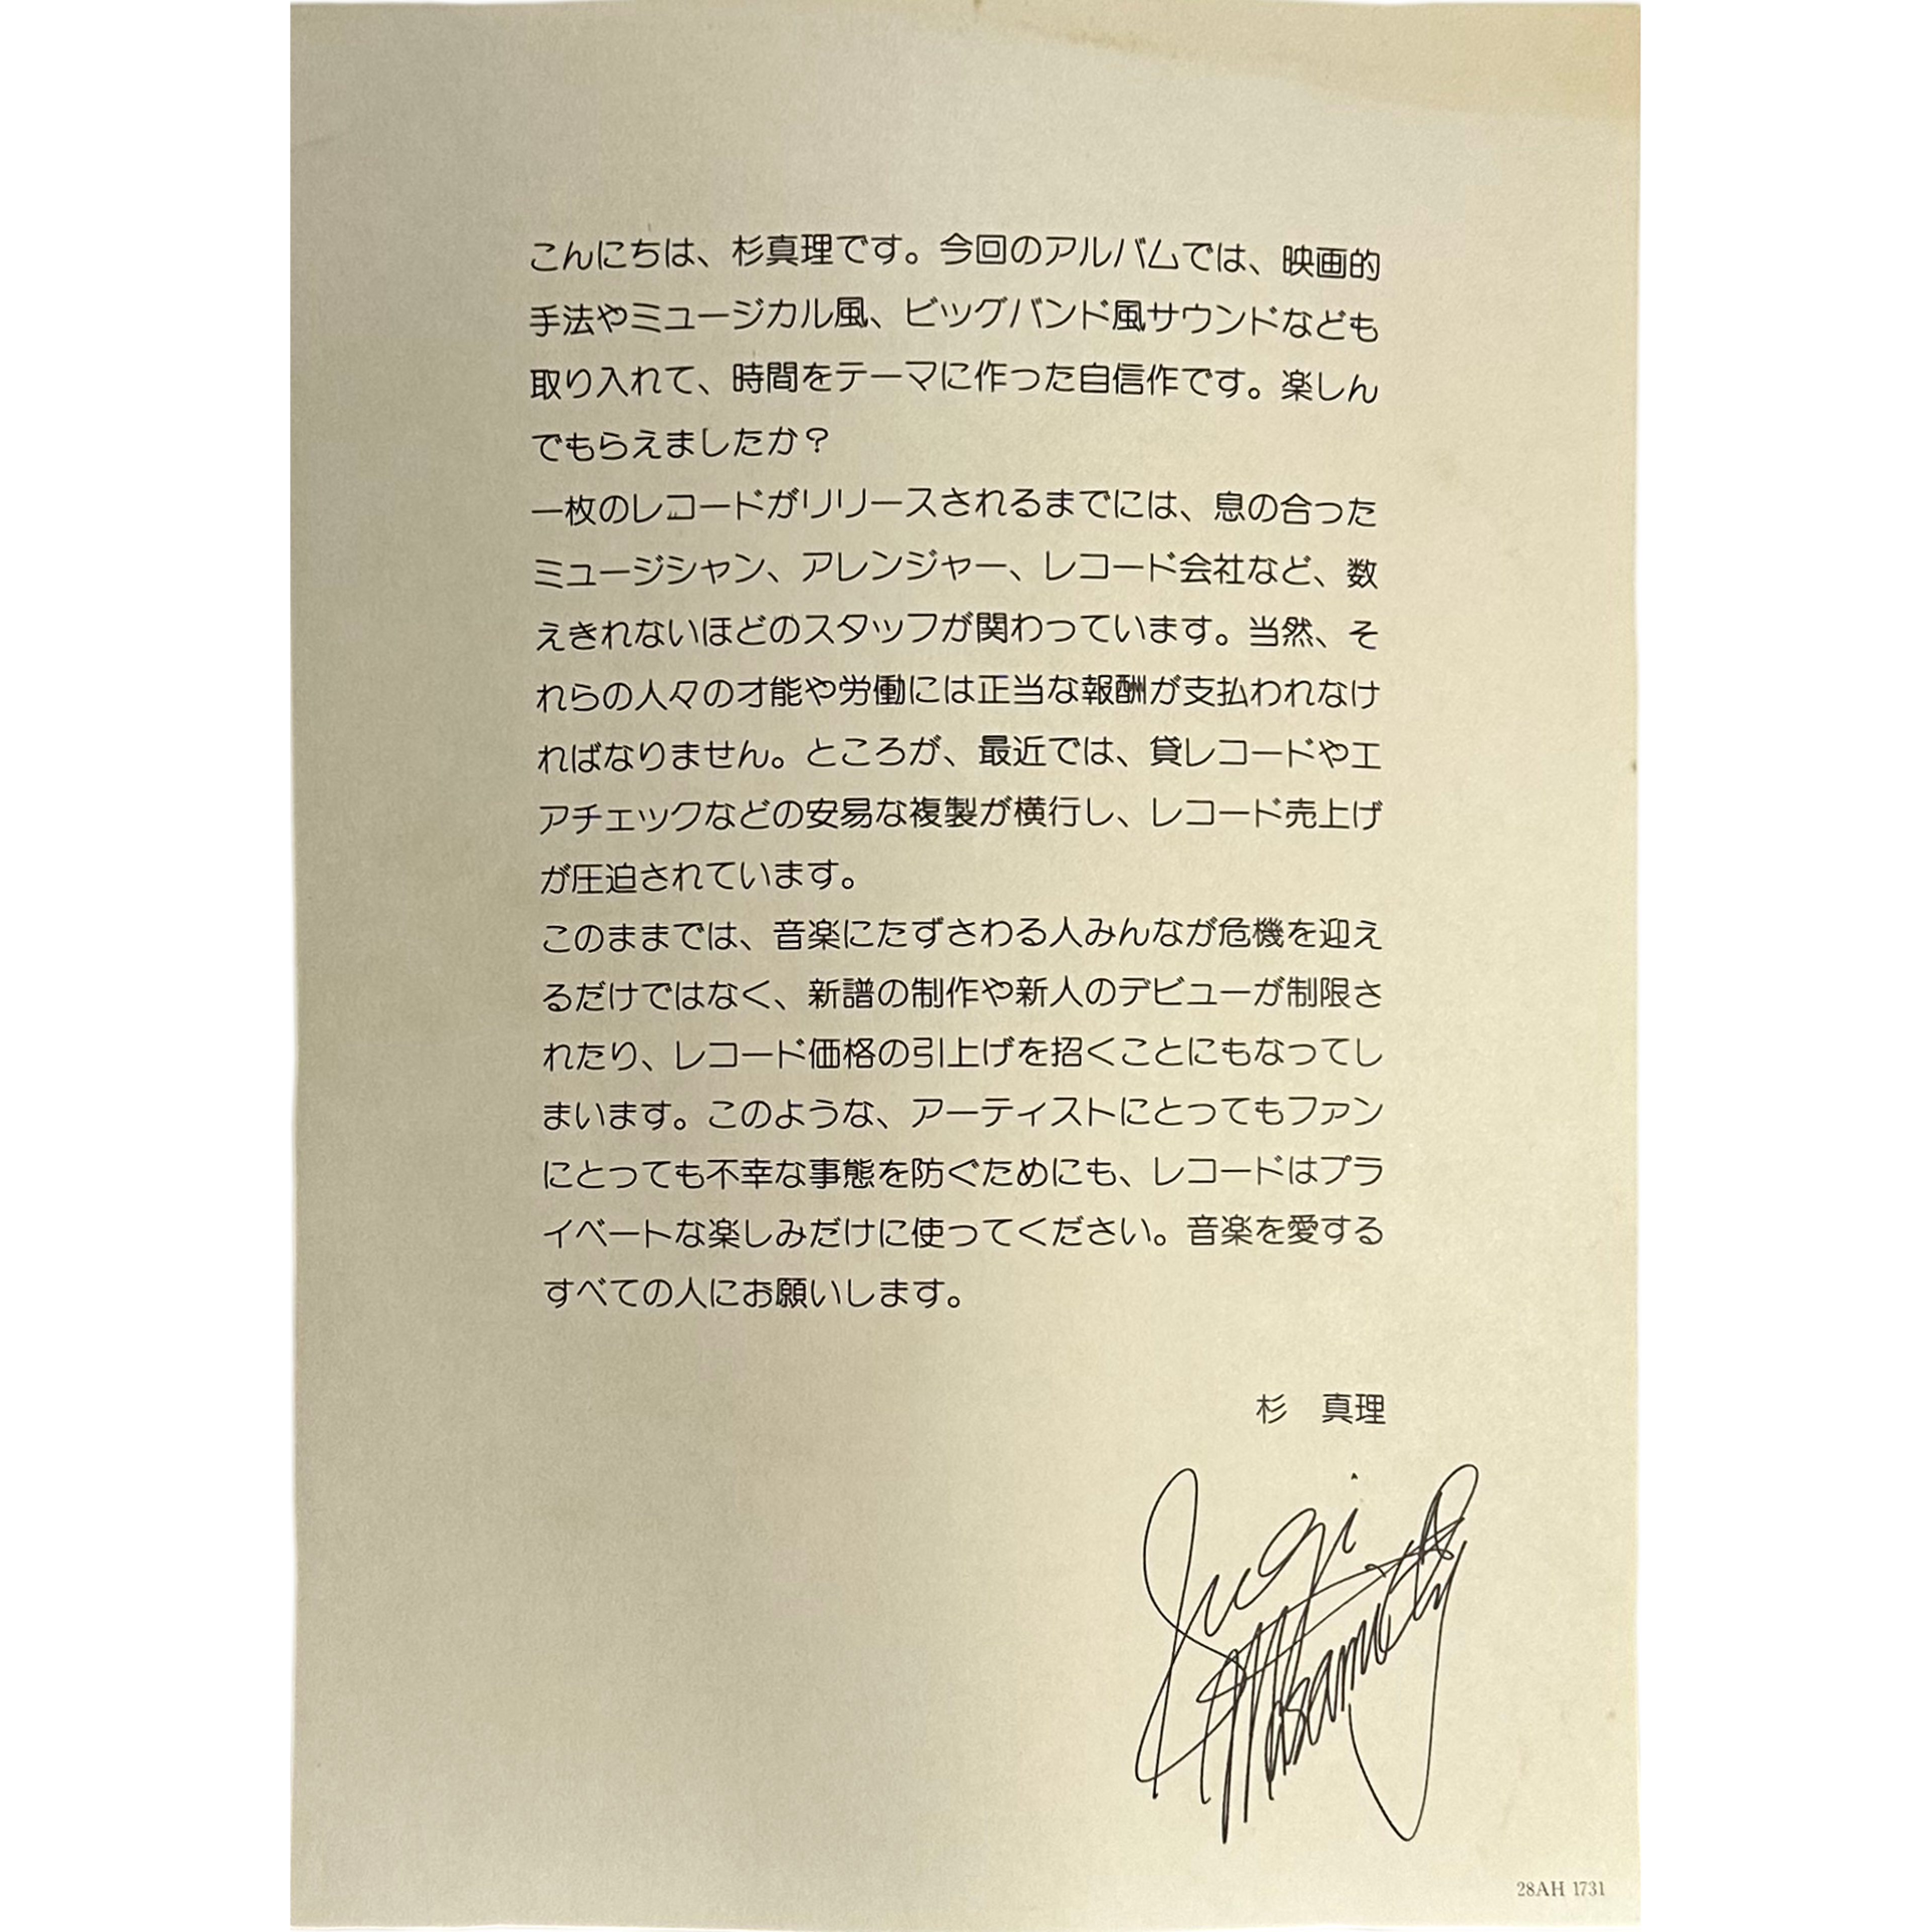 こんにちは、杉真理です。今回のアルバムでは、映画的
手法やミュージカル風、ビッグバンド風サウンドなども
取り入れて、時間をテーマに作った自信作です。楽しん
でもらえましたか？
一枚のレコードがリリースされるまでには、息の合った
ミュージシャン、アレンジャー、レコード会社など、数
えきれないほどのスタッフが関わっています。当然、そ
れらの人々の才能や労働には正当な報酬が支払われなけ
ればなりません。ところが、最近では、貸レコードやエ
アチェックなどの安易な複製が横行し、レコード売上げ
が圧迫されています。
このままでは、音楽にたずさわる人みんなが危機を迎え
るだけではなく、新譜の制作や新人のデビューが制限さ
れたり、レコード価格の引上げを招くことにもなってし
まいます。このような、アーティストにとってもファン
にとっても不幸な事態を防ぐためにも、レコードはプラ
イベートな楽しみだけに使ってください。音楽を愛する
すべての人にお願いします。
杉　真理
Sugi
Masamichi
28AH 1731